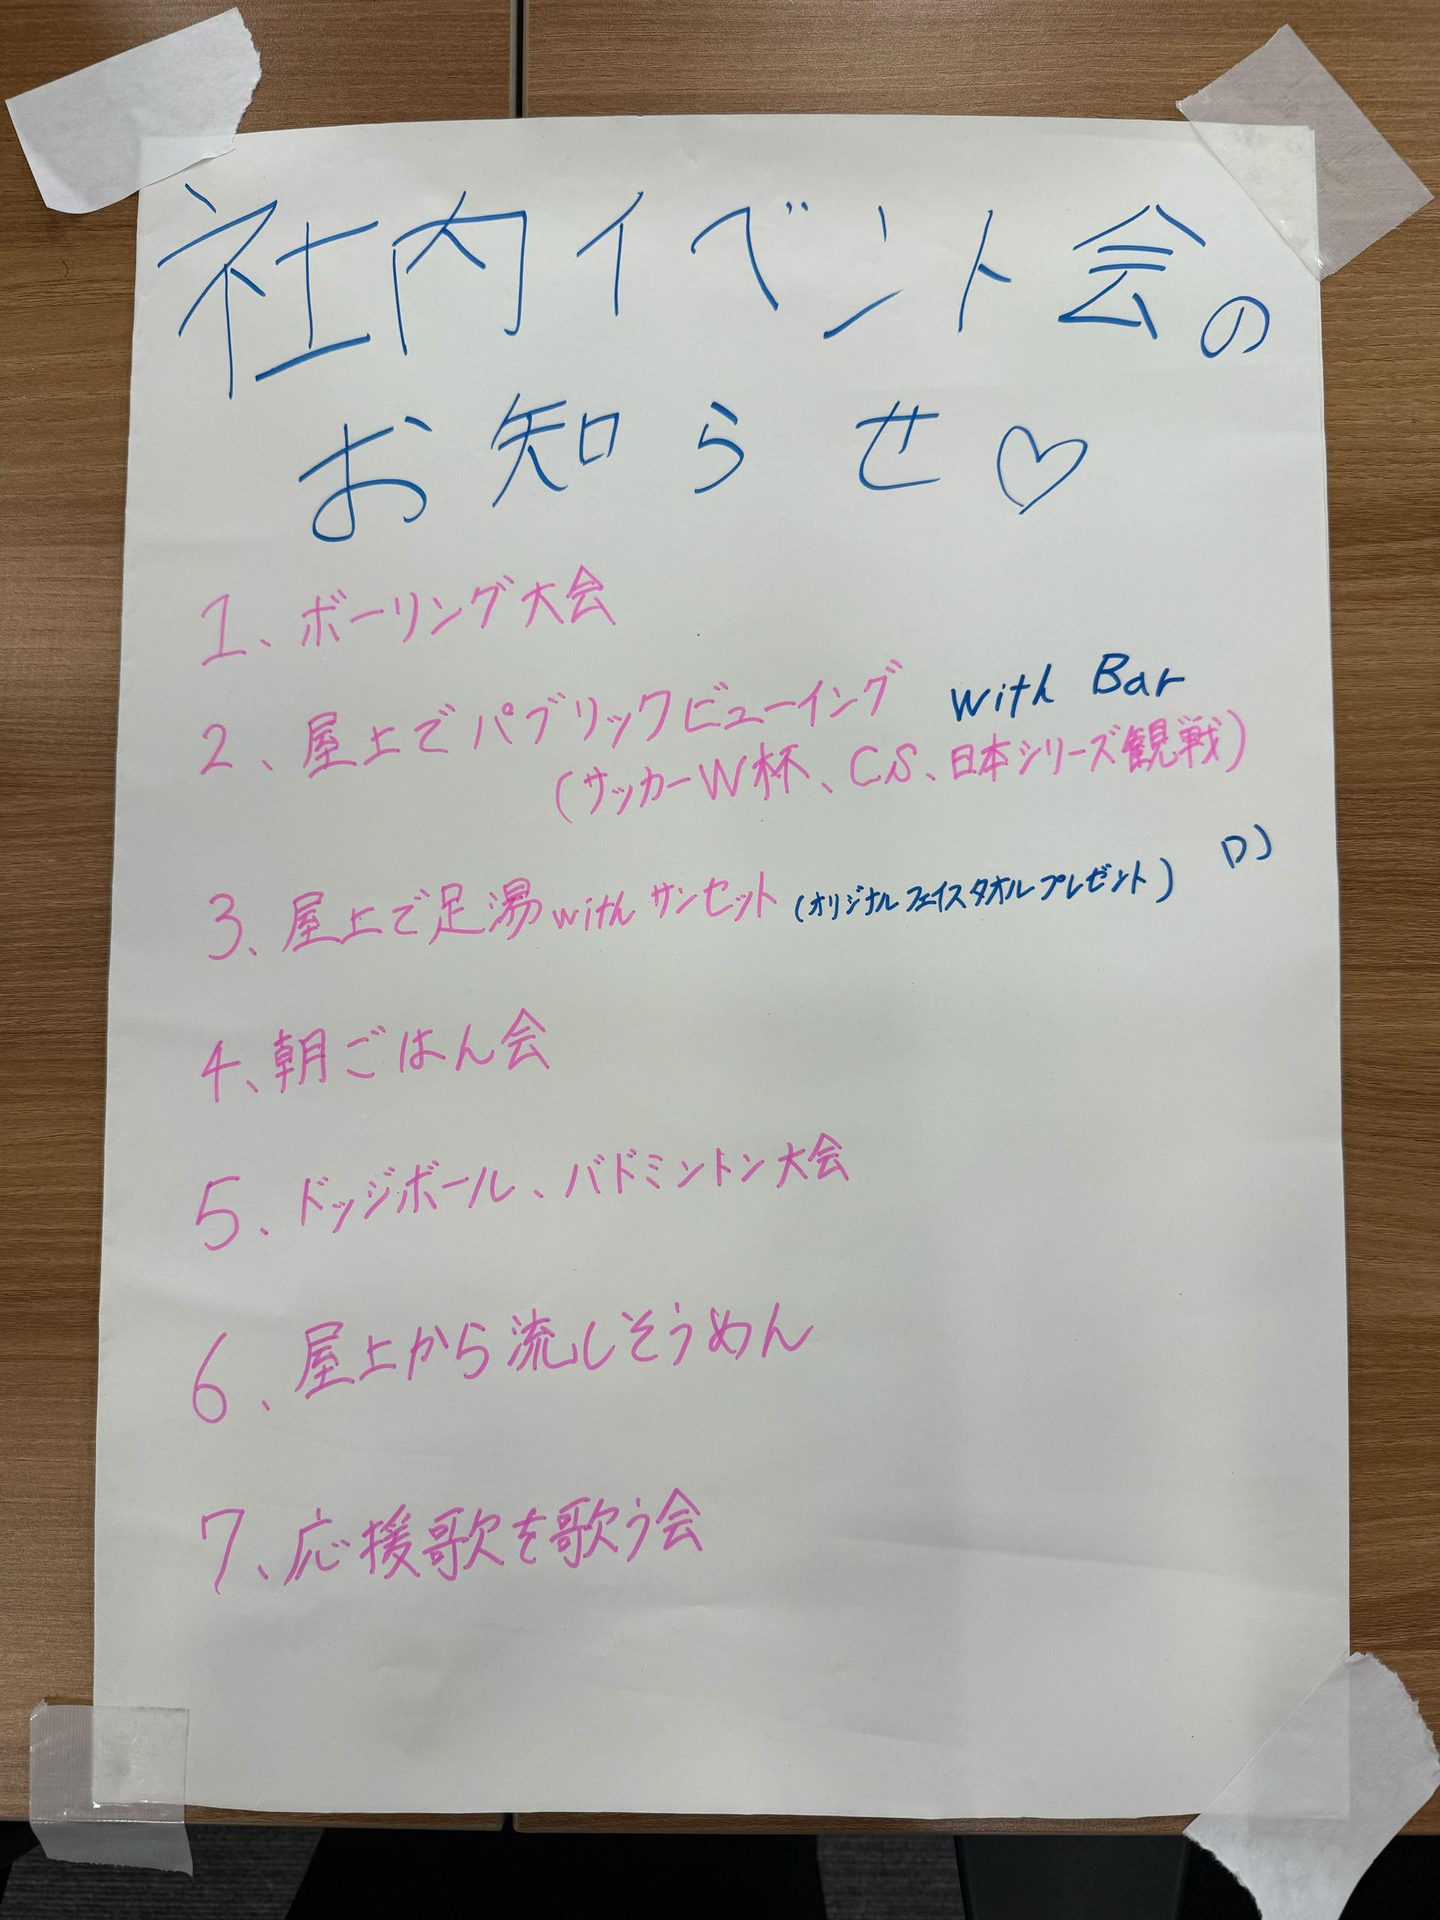 社内イベント会の
お知らせ♡
1、ボーリング大会
2、屋上でパブリックビューイング with Bar
(サッカーW杯、CS、日本シリーズ観戦)
3、屋上で足湯withサンセット(オリジナルフェイスタオルプレゼント) DJ
4、朝ごはん会
5、ドッジボール、バドミントン大会
6、屋上から流しそうめん
7、応援歌を歌う会